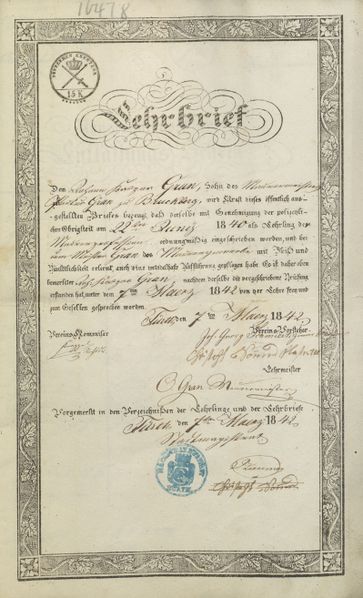 16478
15 K
Lehrbrief
Dem Johann Kaspar Gran, Sohn des Maurermeisters
Gran zu Bruckberg, wird Kraft dieses öffentlich aus-
gestellten Briefes bezeugt, daß derselbe mit Genehmigung der polizeyli-
chen Obrigkeit am 22ten Juny 1840 als Lehrling der
Maurerprofession ordnungsmäßig eingeschrieben worden, und bei
dem Meister Gran das mit Fleiß und
Pünktlichkeit erlernt, auch eine untadelhafte Aufführung gepflogen habe. Es ist daher oben
benennter Joh. Kaspar Gran, nachdem derselbe die vorgeschriebene Prüfung
erstanden hat, unter dem 7ten Maerz 1842 von der Lehre frey und
zum Gesellen gesprochen worden.
Fürth, den 7ten Maerz 1842.
Vereins-Kommissär
Vereins-Vorsteher
Joh. Georg
Lehrmeister
C Gran Maurermeister
Vorgemerkt in den Verzeichnissen der Lehrlinge und der Lehrbriefe.
Fürth den 7ten Maerz 1842
Stadtmagistrat